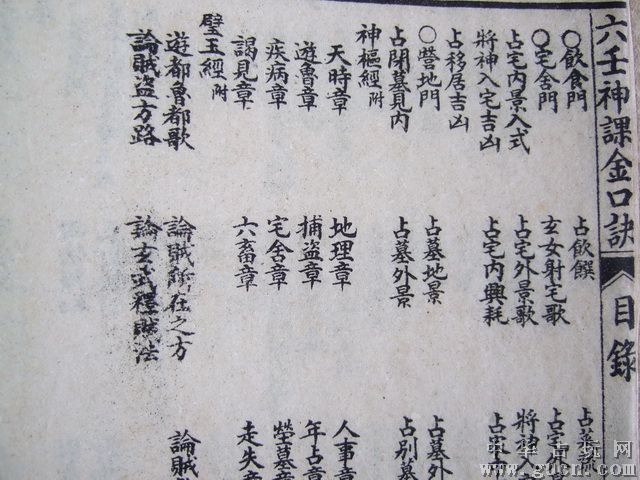 六壬神課金口訣
目錄
○飲食門 占飲饌
○宅舍門 玄女射宅歌 占宅
占宅內景入式 占宅外景歌 將神入
將神入宅吉凶 占宅內興耗 占宅
占移居吉凶
○營地門 占墓地景 占墓外
占開墓見內 占墓外景 占別墓
神樞經附
天時章 地理章 人事章
遊魯章 捕盜章 年占章
疾病章 宅舍章 塋墓章
謁見章 六畜章 走失章
璧玉經附
遊都魯都歌 論賊所在之方 論賊
論賊盜方路 論玄武釋賊法
中华古玩网
www.gucn.com